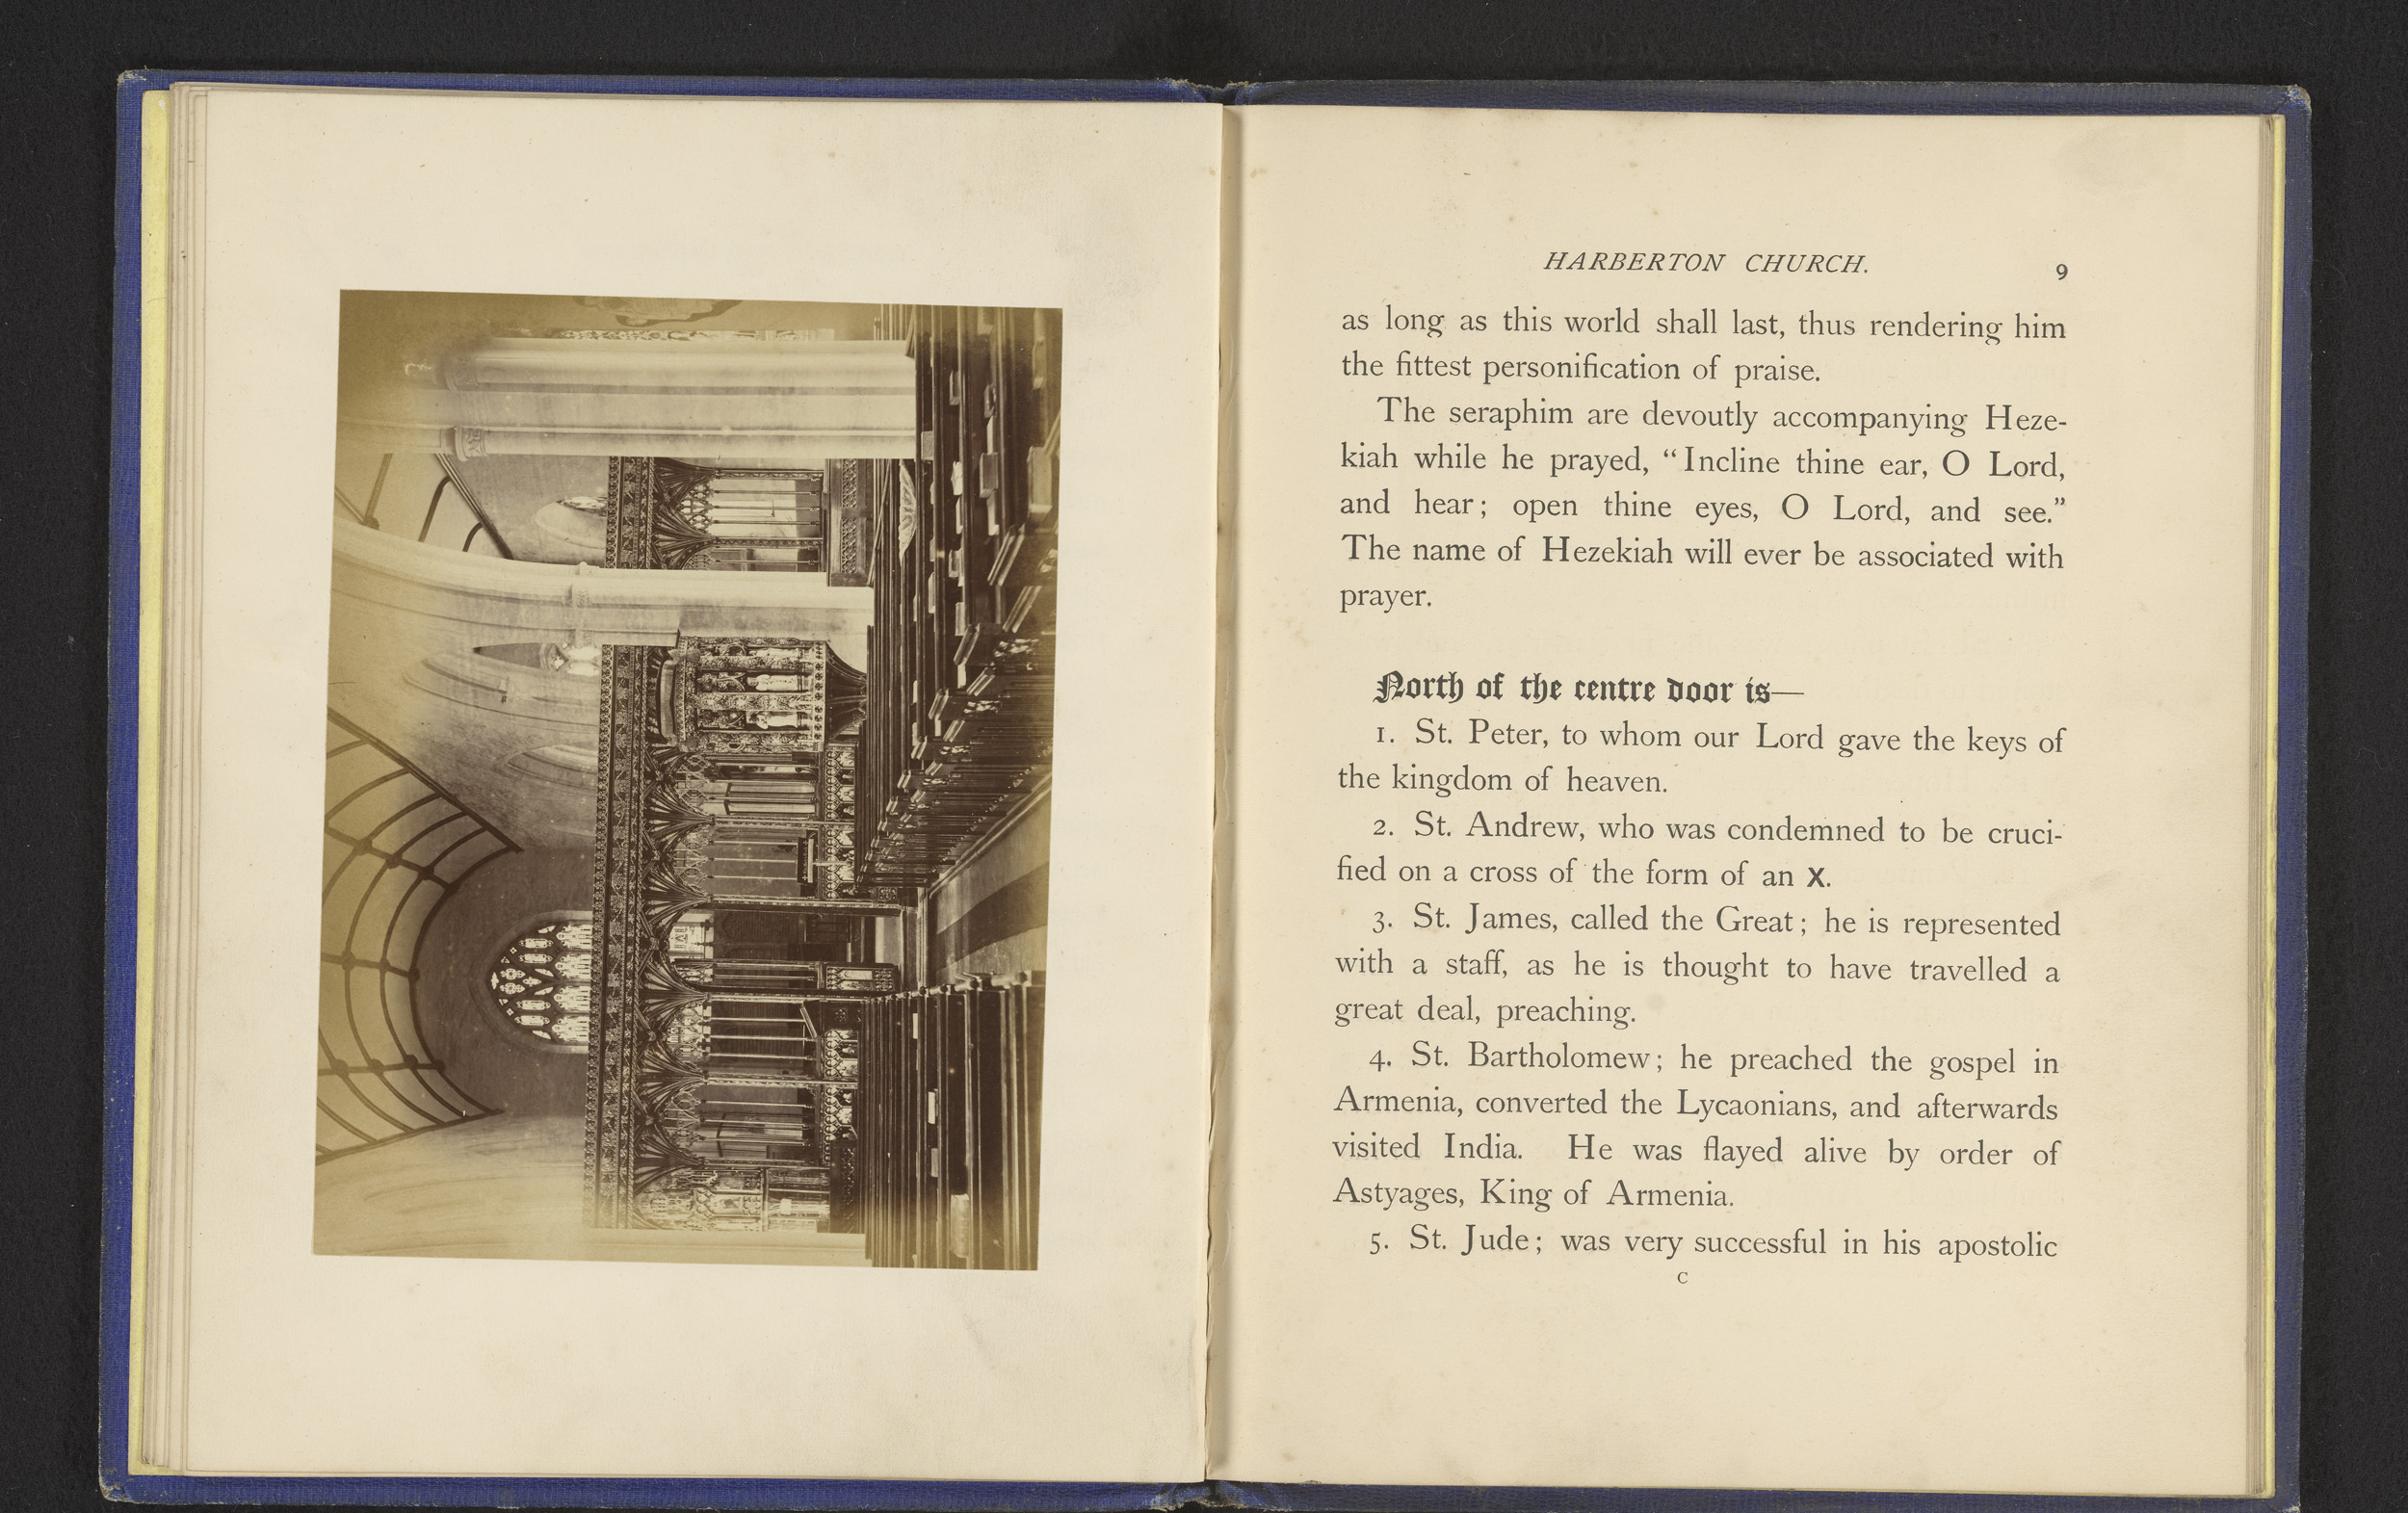 HARBERTON CHURCH. 9
as long as this world shall last, thus rendering him
the fittest personification of praise.
The seraphim are devoutly accompanying Heze-
kiah while he prayed, “Incline thine ear, O Lord,
and hear; open thine eyes, O Lord, and see.”
The name of Hezekiah will ever be associated with
prayer.
North of the centre door is—
1. St. Peter, to whom our Lord gave the keys of
the kingdom of heaven.
2. St. Andrew, who was condemned to be cruci-
fied on a cross of the form of an X.
3. St. James, called the Great; he is represented
with a staff, as he is thought to have travelled a
great deal, preaching.
4. St. Bartholomew; he preached the gospel in
Armenia, converted the Lycaonians, and afterwards
visited India. He was flayed alive by order of
Astyages, King of Armenia.
5. St. Jude; was very successful in his apostolic
C